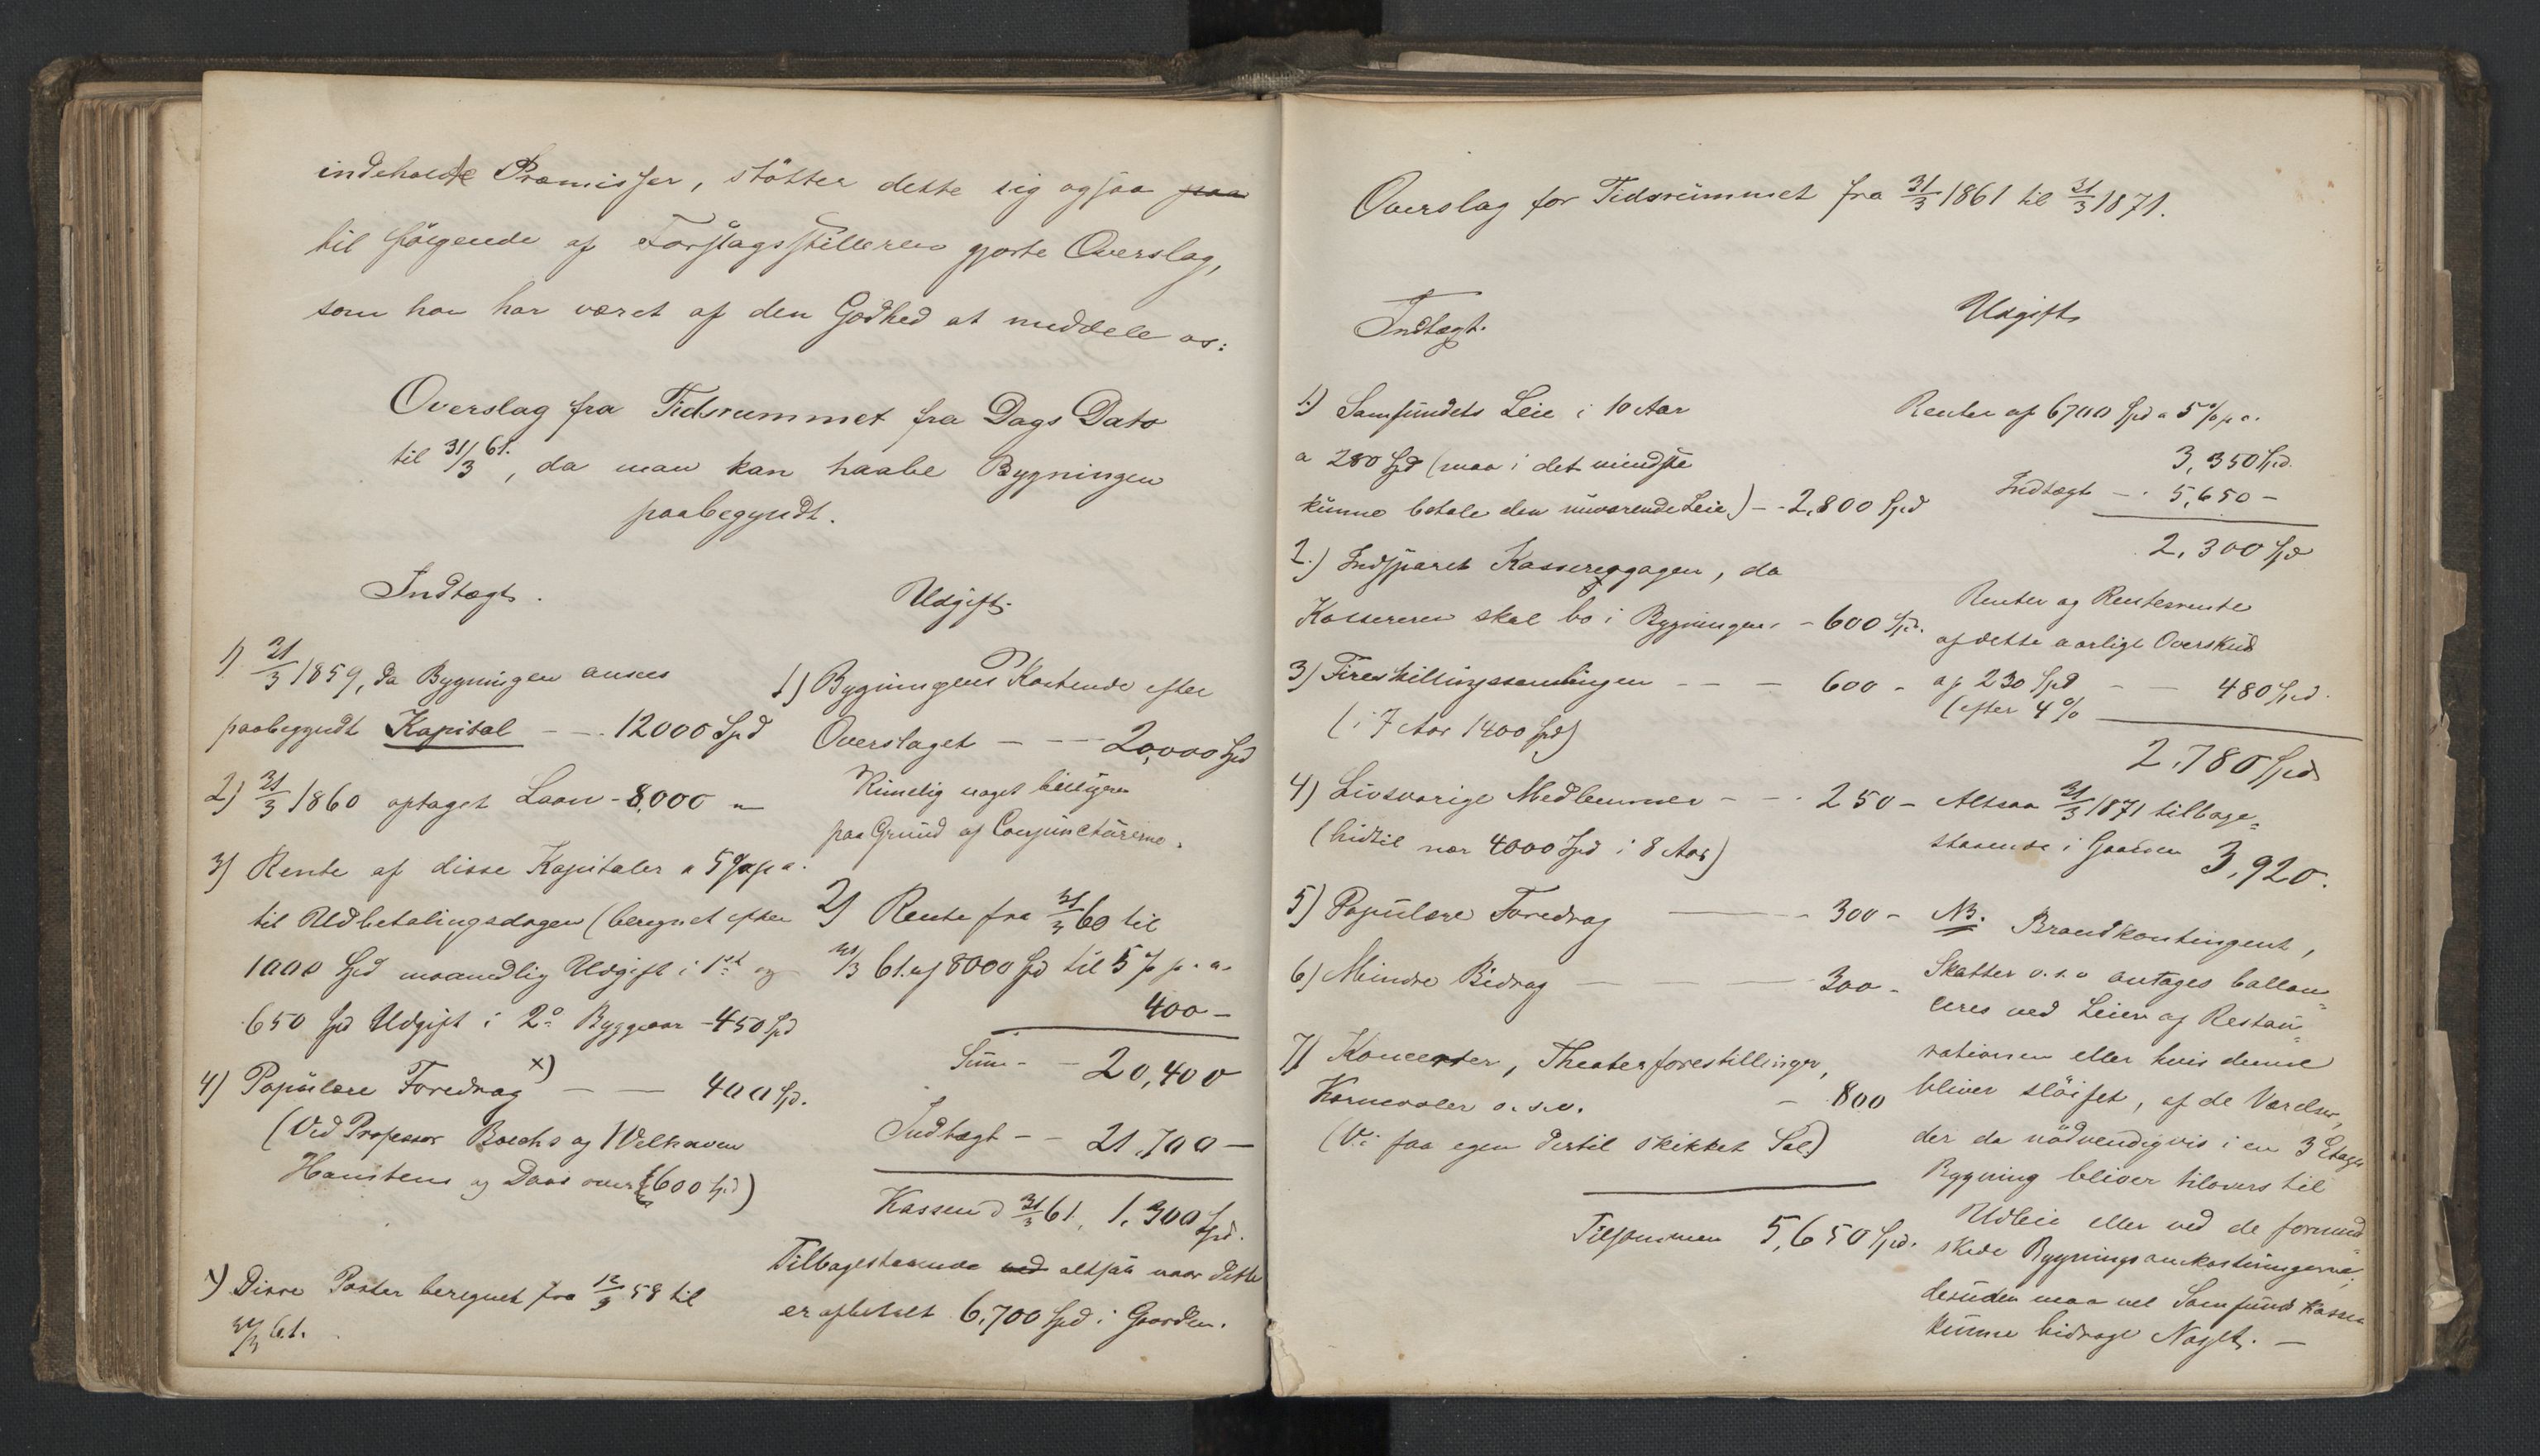 indeholdte Præmisser, støtter dette sig ogsaa paa
til følgende af Forslagsstilleren gjorte Overslag,
som han har været af den Godhed at meddele os:
Overslag fra Tidsrummet fra Dags Dato
til 31/3 61., da man kan haabe Bygningen
paabegyndt.
Indtægt.
1) 31/3 1859, da Bygningen ansees
paabegyndt Kapital - - 12000 Spd
2) 31/3 1860 optaget Laan - 8,000 "
3) Rente af disse Kapitaler a 5% p a.
til Udbetalingsdagen (beregnet efter
1000 Spd maanedlig Udgift i 1st og
650 Spd Udgift i 2o Byggeaar - 450 Spd
4) Populære Foredrag x) - - 400 Sp.
(Ved Professor Boecks og Welhaven
Hansteens og Daas over 600 Spd)
x) Disse Poster beregnet fra 12/3 58 til
31/3 61.
Udgift.
1) Bygningens Kostende efter
Overslaget - - 20,000 Spd
Rimelig noget billigere
paa Grund af Conjuncturerne.
2) Rente fra 31/3 60 til
31/3 61. af 8000 Spd til 5% p. a.
400 -
Sum - - 20,400
Indtægt - - 21,700 -
Kassen d 31/3 61. 1,300 Spd.
Tilbagestaaende ved altsaa naar dette
er afbetalt 6,700 Spd i Gaarden.
Overslag for Tidsrummet fra 31/3 1861 til 31/3 1871.
Indtægt.
1.) Samfundets Leie i 10 Aar
a 280 Spd (maa i det mindste
kunne betale den nuværende Leie) - - 2,800 Spd
2.) Indsparet Kasseregagen, da
Kassereren skal bo i Bygningen - 600 Spd.
3) Fireskillingssamlingen - - - 600 -
(i 7 Aar 1400 Spd)
4) Livsvarige Medlemmer - - - 250 -
(hidtil nær 4000 Spd i 8 Aar)
5) Populære Foredrag - - 300 -
6) Mindre Bidrag - - - 300 -
7) Koncerter, Theaterforestillinger,
Karnevaler o. s. v. - 800
(Vi faa egen dertil skikket Sal)
Tilsammen 5,650 Spd.
Udgift
Renter af 6700 Spd a 5% p a.
3,350 Spd.
Indtægt - . 5,650 -
2,300 Spd
Renter og Rentesrente
af dette aarlige Overskud
af 230 Spd - - 480 Spd.
(efter 4%
2,780 Spd
Altsaa 31/3 1871 tilbage=
staaende i Gaarden 3,920.
NB. Brandkontingent,
Skatter o. s. v antages ballan=
ceres ved Leien af Restau=
rationen eller hvis denne
bliver sløifet, af de Værelser,
der da nødvendigvis i en 3 Etages
Bygning bliver tilovers til
Udleie eller ved de formind=
skede Bygningsomkostningerne;
desuden maa vel Samfunds Kassen
kunne bidrage Noget. -